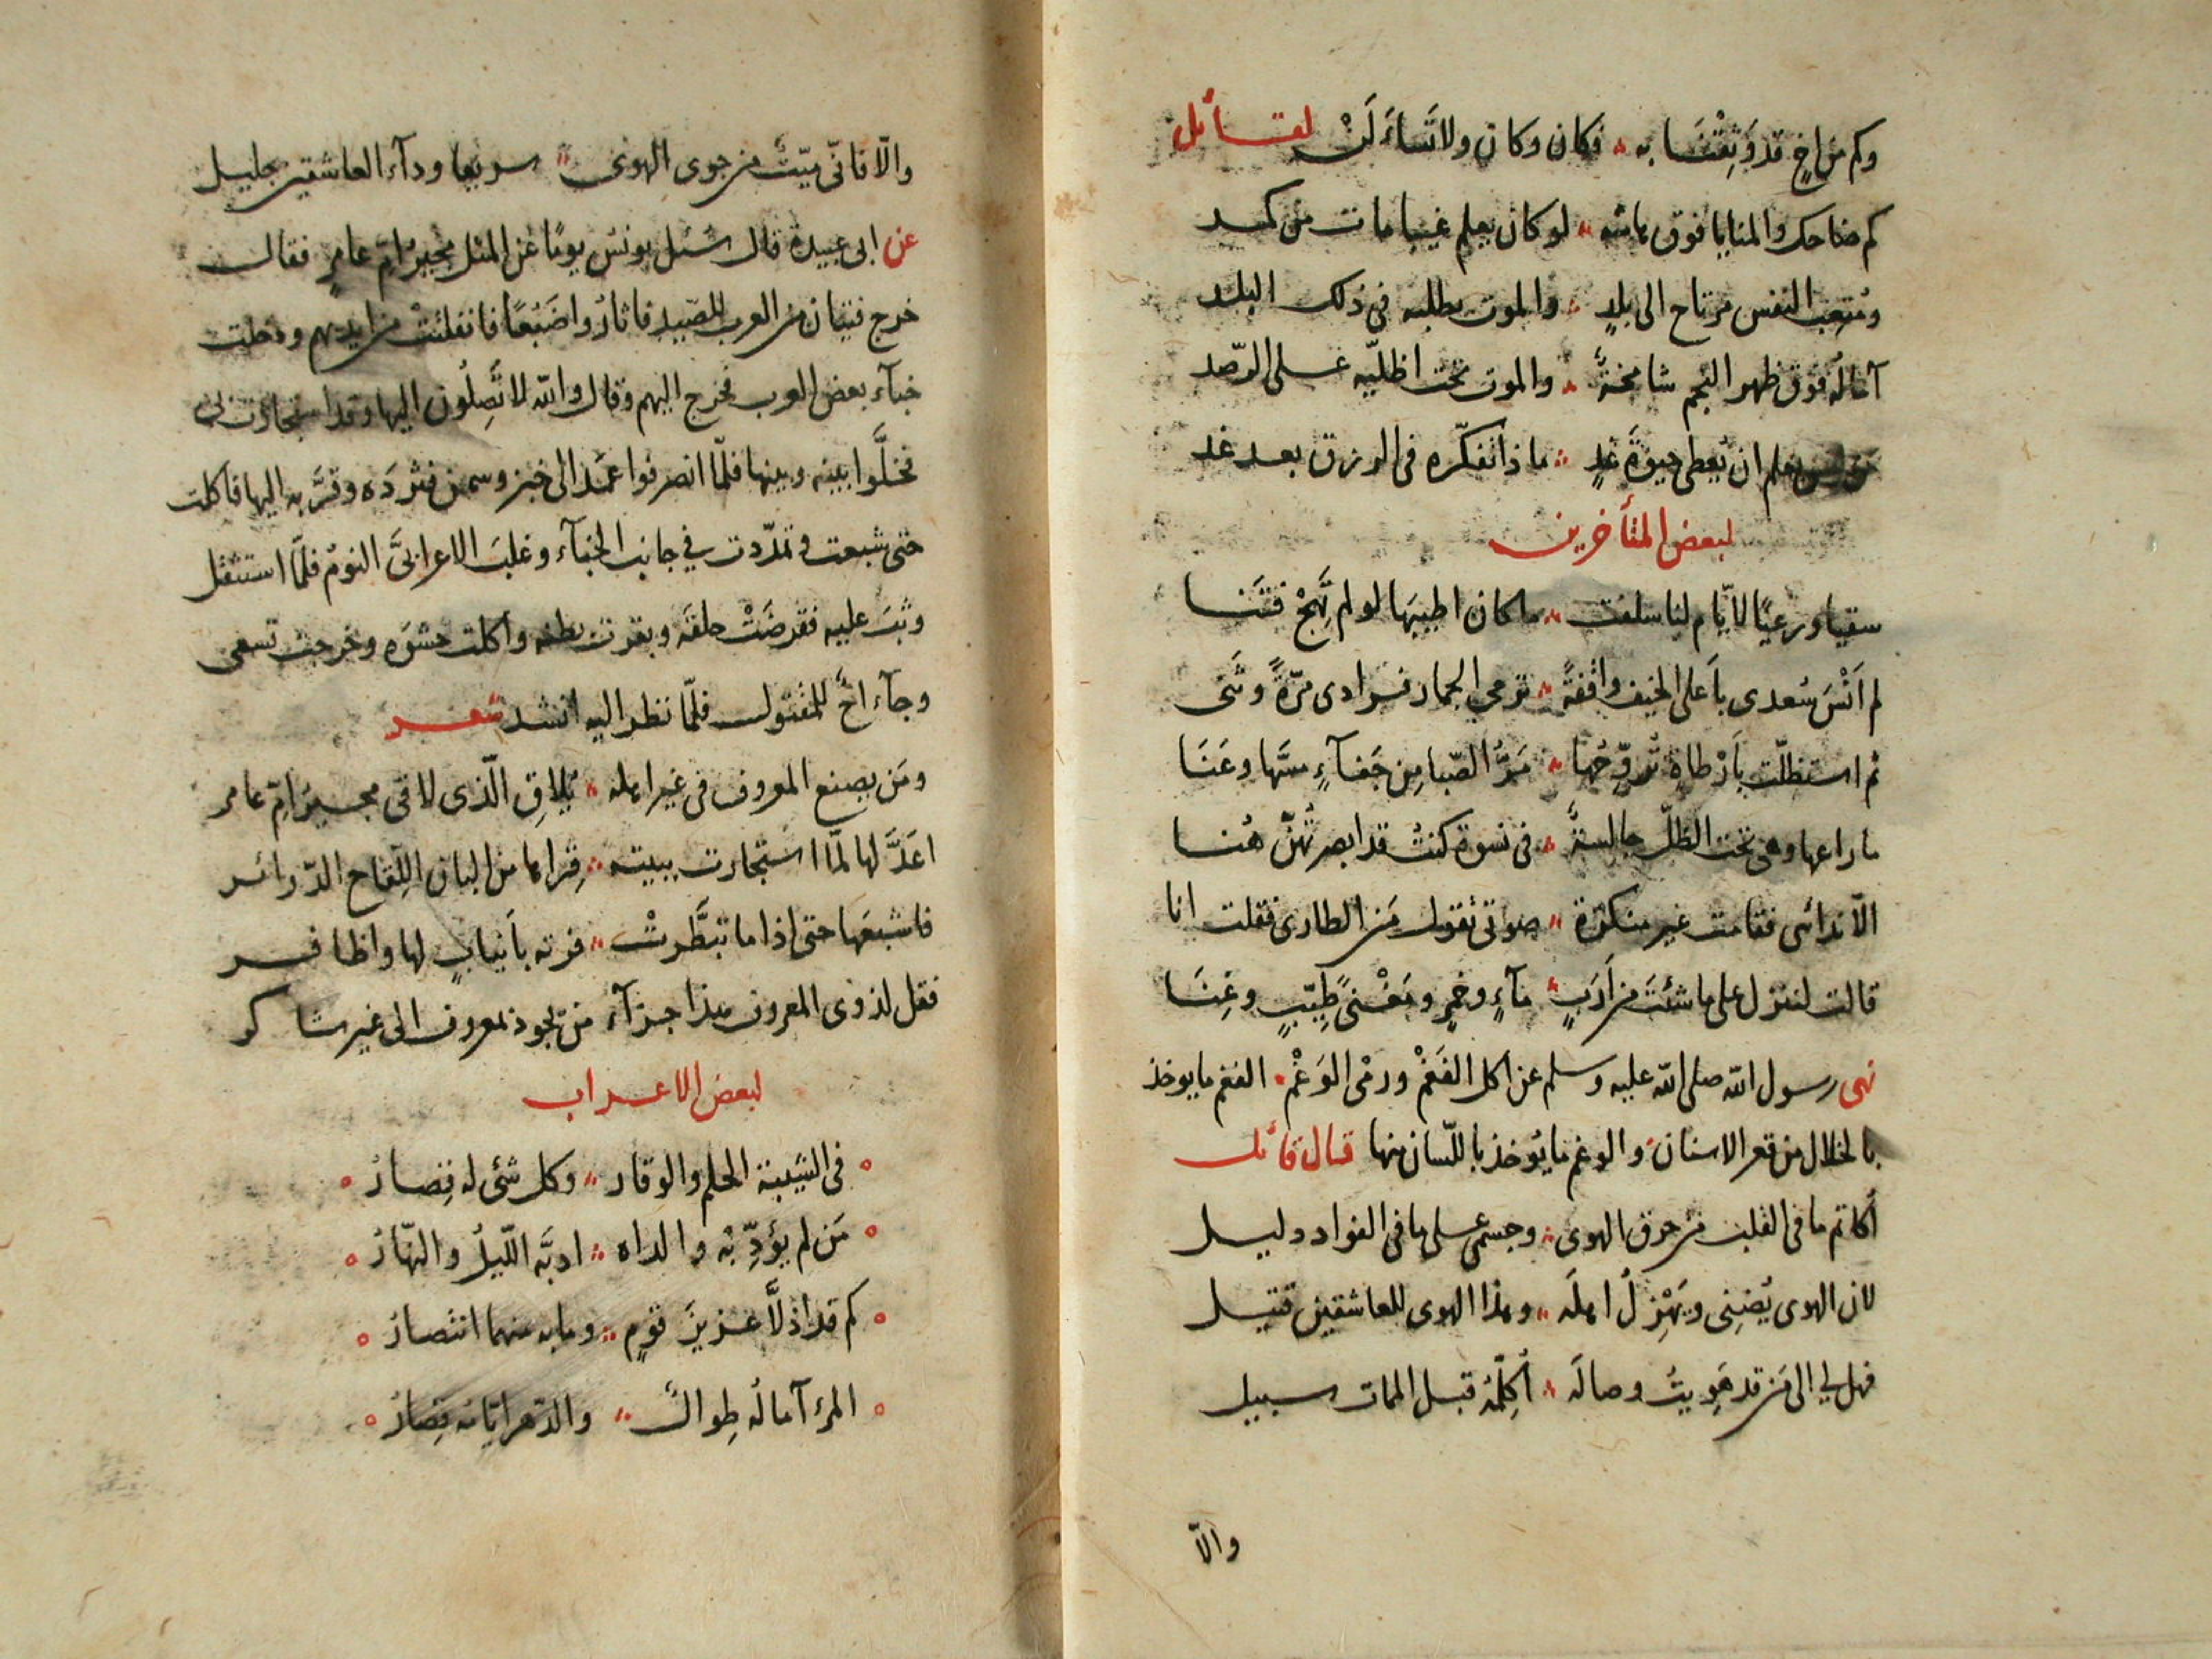 وكم من اخٍ قد وَثِقْنَا به ؞ فكان وكان ولا تَسْاَلَنْ لقائل
كم ضاحك والمنايا فوق هامته ؞ لو كان يعلم غيبا مات من كمد
ومُتعِب النفس مرتاح الى بلدٍ ؞ والموت يطلبه فى ذلك البلد
آماله فوق ظهر النجم شامخةٌ ؞ والموت تحت اظليه على الرّصد
يعلم ان يُعطى حيوةَ غدٍ ؞ ماذا تفكّره فى الرزق بعد غد
لبعض المتأخرين
سقيا ورعيًا لاَيّام لنا سلفت ؞ ما كان اطيبَها لو لم تَهِجْ فتَنا
لم اَنْسَ سُعدى باَعلى الخيف واقفةً ؞ ترمي الجمار فرادى مرّةً وثَنى
ثم استظلّت باَرْطاةٍ تُروِّحُها ؞ مَرُّ الصّبا مِن جَفآءٍ مسَّها وعَنَا
ما راعها وهى تحت الظلّ جالسةٌ ؞ فى نسوة كنتُ قد ابصرتُهنّ هُنا
الّا ندائى فقامت غير منكرة ؞ صوتى تقول مَن الطارى فقلت انا
قالت لتنزل على ما شئتَ من اَرَبٍ ؞ مآءٍ وخمرٍ ومَغْنىً طيّبٍ وغِنَا
نهى رسول الله صلى الله عليه وسلم عن اكل الفَغْم ورمى الوَغْم ؞ الفغم ما يوخذ
بالخلال من قعر الاسنان والوغم ما يُوخذ باللّسان منها قال قائل
اُكاتم ما فى القلب من حرق الهوى ؞ وجسمى على ما فى الفواد دليل
لان الهوى يُضنِى ويَهْزِلُ اهلَه ؞ وهذا الهوى للعاشقين قتيل
فهل لي الى من قد هَوِيتُ وصالَه ؞ اُكلِّمُه قبل الممات سبيل
والّا
والّا فانّى ميّتٌ من جوى الهوى ؞ سريعا ودآء العاشقين جليل
عن ابى عبيدة قال سُئل يونس يومًا عن المثل مجير اُمّ عامرٍ فقال
خرج فتيان من العرب للصّيد فاثاروا ضَبُعًا فانفلتتْ من ايديهم ودخلت
خبآء بعض العرب فخرج اليهم وقال والله لا تَصِلُون اليها وقد استجارت بى
فخلَّوا بينه وبينها فلمّا انصرفوا عَمَد الى خبز وسمن فثردَه وقرَّبه اليها فاكلت
حتى شبعت وتمدّدت في جانب الخبآء وغلبَ الاعرابىَّ النومُ فلمّا استثقل
وثبَت عليه فقرضَتْ حلقَه وبقرت بطنه واكلت حشوَه وخرجت تسعى
وجآء اخٌ للمقتول فلمّا نظر اليه انشد شعر
ومَن يصنع المعروف فى غير اهله ؞ يُلاقِ الّذى لاقى مجير اُمّ عامر
اعَدَّ لها لمّا استجارت ببيته ؞ قِراها من البان اللِّقاح الدّرائر
فاشبعَها حتى اذا ما تبطَّرتْ ؞ فرته باَنيابٍ لها واظافر
فقل لذوى المعروف هذا جزآء من يجود بمعروف الى غير شاكر
لبعض الاعراب
فى الشيبة الحلم والوقار ؞ وكل شئ له قِصارُ
مَن لم يُؤدِّبْه والداه ؞ ادبَّه اللّيلُ والنّهارُ
كم قد اذلَّا عزيزَ قومٍ ؞ وما به منهما انتصارُ
المرء آماله طِوالٌ ؞ والدّهر ايامه قِصارُ